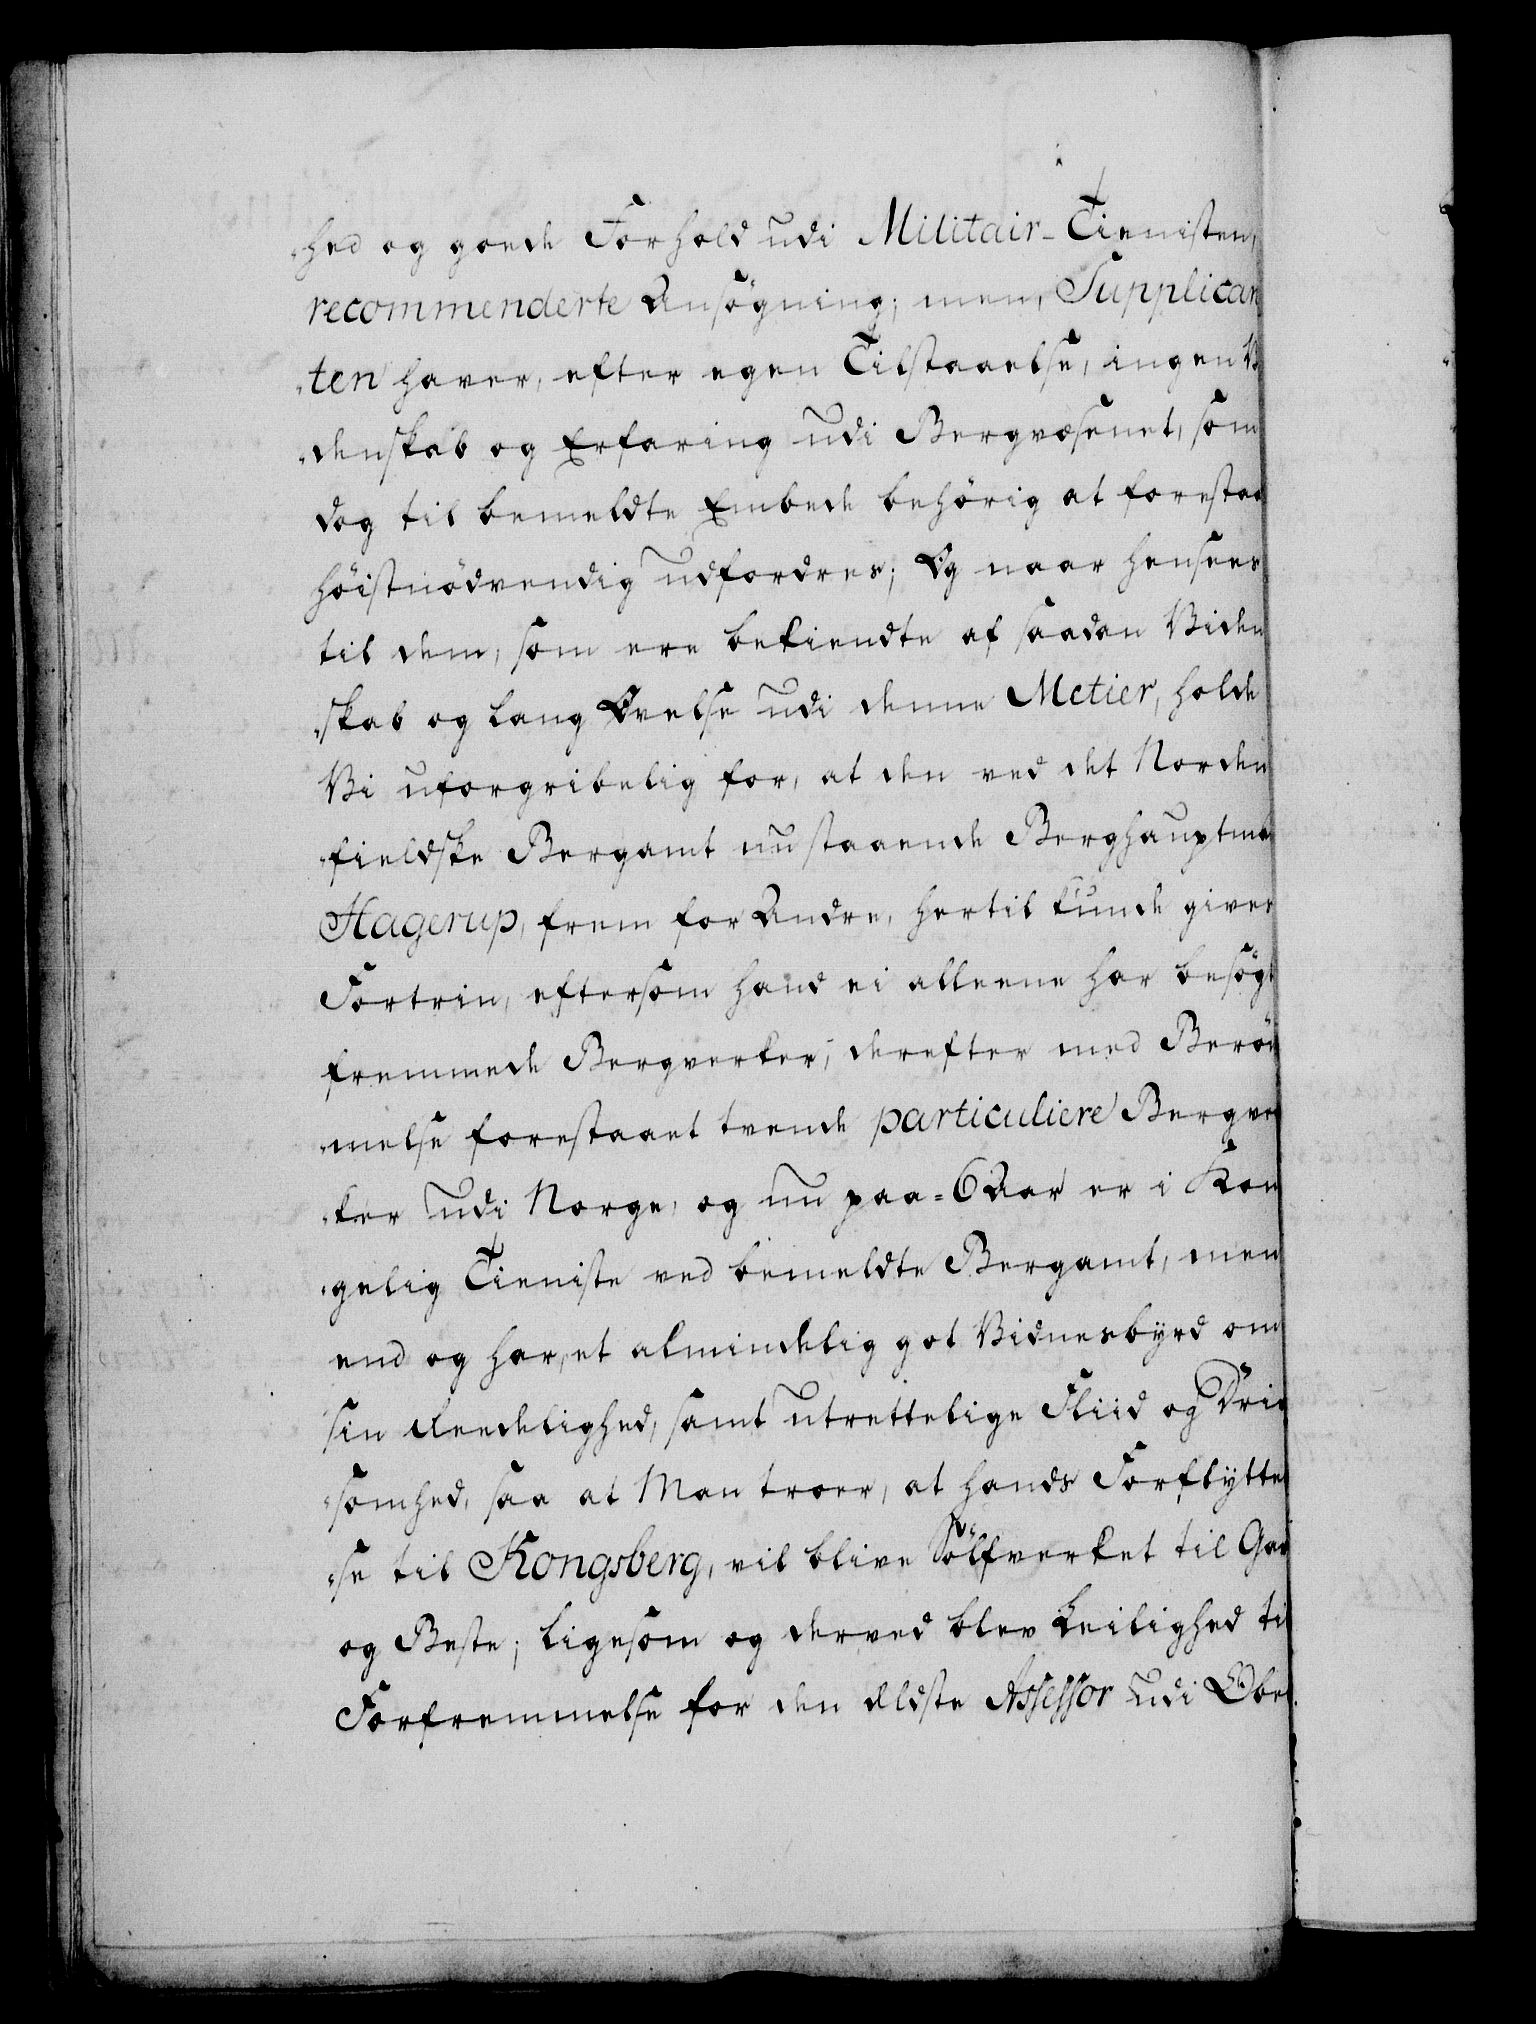 „hed og goede Forhold udi Militair-Tienisten,
recommenderte Ansøgning; men, Supplican
„ten haver, efter egen Tilstaaelse, ingen
„denskab og Erfaring udi Bergvæsenet, som
dog til bemeldte Embede behörig at forestaa
höistnödvendig udfordres; Og naar hensees
til dem, som ere bekiendte af saadan Viden
„skab og lang Øvelse udi denne Metier, holde
Vi uforgribelig for, at den ved det Norden
„fieldske Bergamt nu staaende Berghauptma
Hagerup, frem for Andre, hertil kunde gives
Fortrin, eftersom hand ei alleene har besögt
fremmede Bergverker, derefter med Beröm
„melse forestaaet tvende particuliere Bergver
„ker udi Norge, og nu paa=6 Aar er i Kon
„gelig Tieniste ved bemeldte Bergamt, men
end og har, et almindelig got Vidnesbyrd om
sin Reedelighed, samt utrettelige Fliid og Drif
„somhed, saa at Man troer, at hands Forflyttel
„se til Kongsberg, vil blive Sölfverket til Gav
og Beste; ligesom og derved blev Leilighed til
Forfremmelse for den Ældste Assessor udi Ober